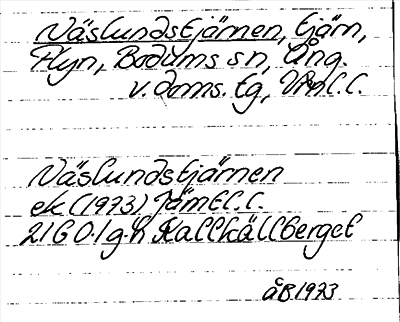 Näslundstjärnen, tjärn,
Flyn, Bodums sn, Ång.
v. doms. tg, Vnl. l.
Näslundstjärnen
ek (1973) Jämtl. l.
21G 0-1 g-h Kallkällberget
ÅB 1973